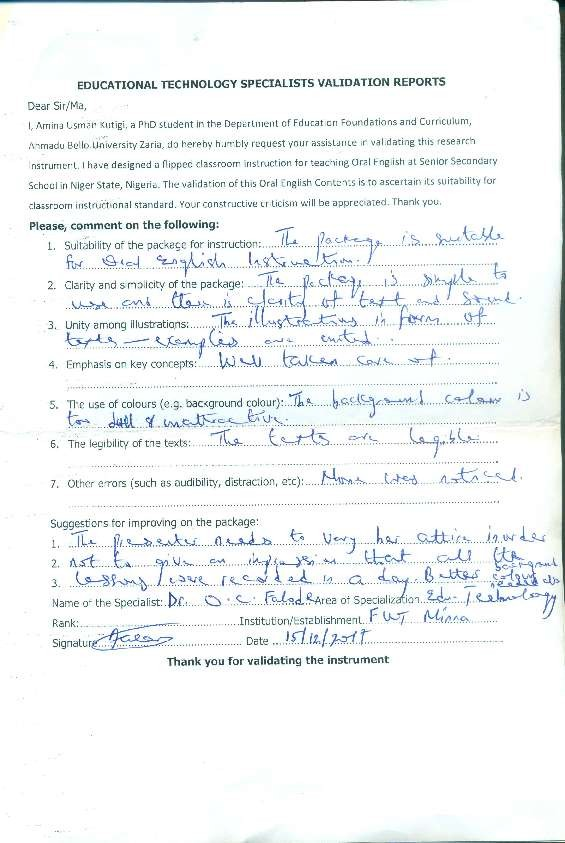 EDUCATIONAL TECHNOLOGY SPECIALISTS VALIDATION REPORTS
Dear Sir/Ma,
I, Amina Usman Kutigi, a PhD student in the Department of Education Foundations and Curriculum,
Ahmadu Bello University Zaria, do hereby humbly request your assistance in validating this research
instrument. I have designed a flipped classroom instruction for teaching Oral English at Senior Secondary
School in Niger State, Nigeria. The validation of this Oral English Contents is to ascertain its suitability for
classroom instructional standard. Your constructive criticism will be appreciated. Thank you.
Please, comment on the following:
1. Suitability of the package for instruction: The package is suitable
for Oral English Instruction.
2. Clarity and simplicity of the package: The package is simple to
use and there is clarity of text and sound.
3. Unity among illustrations: The illustrations in form of
texts – examples are united.
4. Emphasis on key concepts: Well taken care of.
5. The use of colours (e.g. background colour): The background colour is
too dull & inattractive.
6. The legibility of the texts: The texts are legible
7. Other errors (such as audibility, distraction, etc): None was noticed.
Suggestions for improving on the package:
1. The Presenter needs to vary her attire inorder
2. not to give an impression that all the
3. lessons were recorded in a day. Better background colours needed
Name of the Specialist: Dr. O. C. Falade Area of Specialization Edu. Technology
Rank: Institution/Establishment FUT Minna
Signature Date 15/12/2017
Thank you for validating the instrument